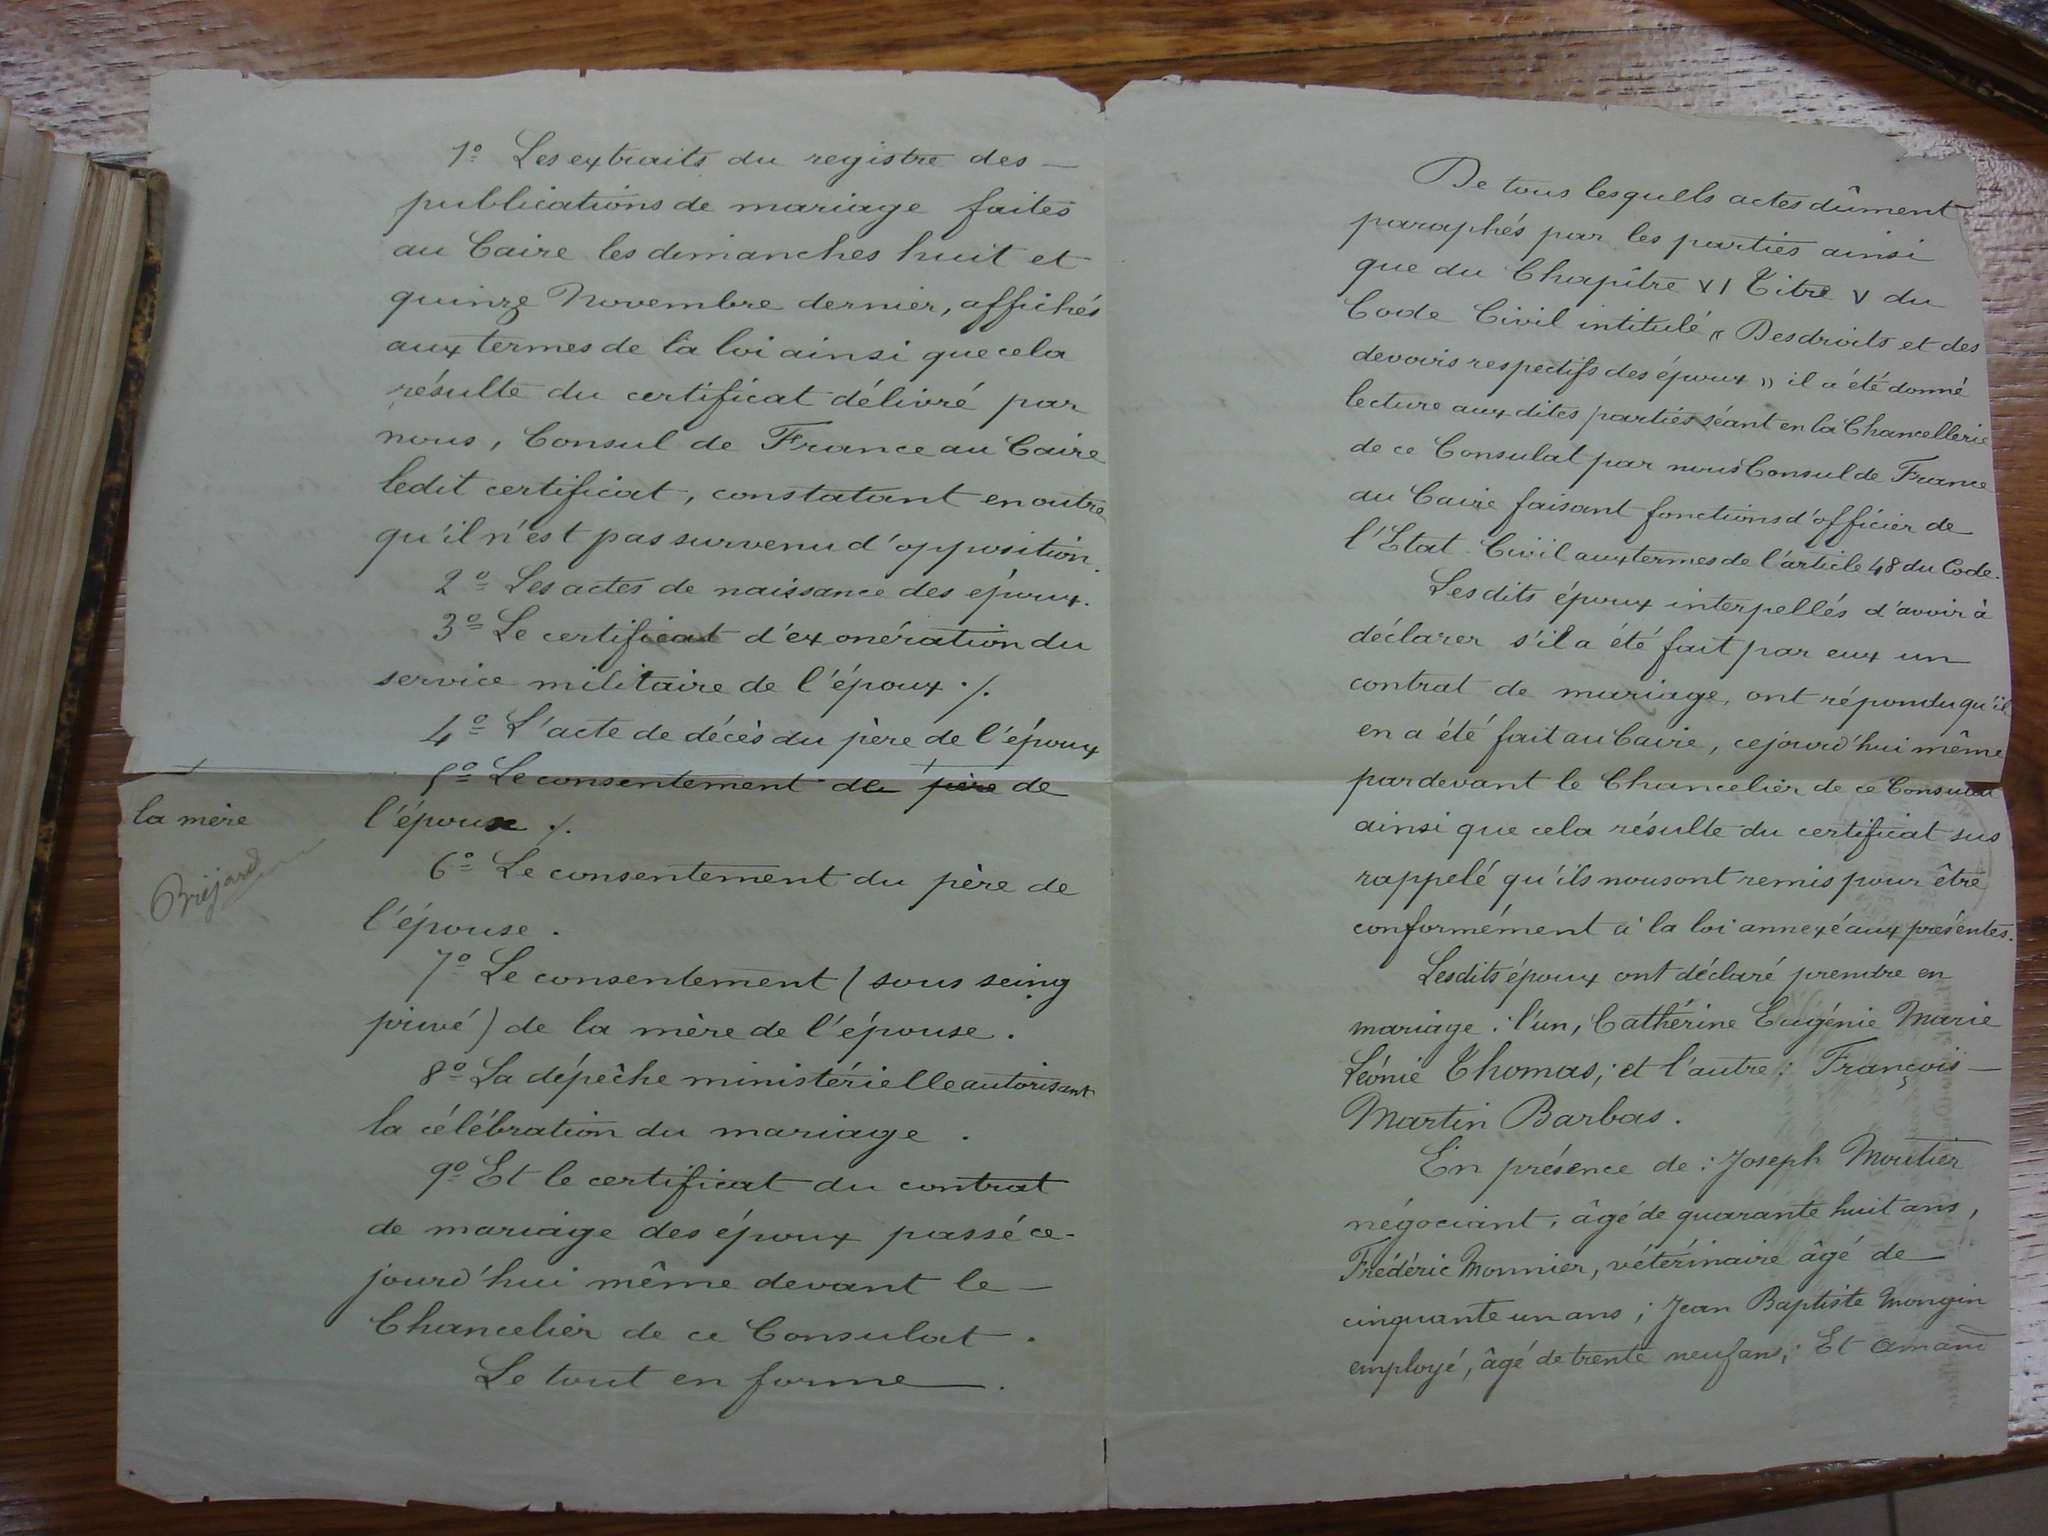 1º Les extraits du registre des —
publications de mariage faites
au Caire les dimanches huit et
quinze Novembre dernier, affichés
aux termes de la loi ainsi que cela
résulte du certificat délivré par
nous, Consul de France au Caire
ledit certificat, constatant en outre
qu'il n'est pas survenu d'opposition.
2º Les actes de naissance des époux.
3º Le certificat d'exonération du
service militaire de l'époux ./.
4º L'acte de décès du père de l'époux
5º Le consentement de père de
la mère
l'époux ./.
Bréjard
6º Le consentement du père de
l'épouse.
7º Le consentement (sous seing
privé) de la mère de l'épouse.
8º La dépêche ministérielle autorisant
la célébration du mariage.
9º Et le certificat du contrat
de mariage des époux passé ce-
jourd'hui même devant le —
Chancelier de ce Consulat.
Le tout en forme.
De tous lesquels actes dûment
paraphés par les parties ainsi
que du Chapître VI Titre V du
Code Civil intitulé « Des droits et des
devoirs respectifs des époux » il a été donné
lecture aux dites parties séant en la Chancellerie
de ce Consulat par nous Consul de France
au Caire faisant fonctions d'officier de
l'Etat Civil aux termes de l'article 48 du Code.
Lesdits époux interpellés d'avoir à
déclarer s'il a été fait par eux un
contrat de mariage, ont répondu qu'il
en a été fait au Caire, cejourd'hui même
pardevant le Chancelier de ce Consulat
ainsi que cela résulte du certificat sus
rappelé qu'ils nous ont remis pour être
conformément à la loi annexé aux présentes.
Lesdits époux ont déclaré prendre en
mariage : l'un, Cathérine Eugénie Marie
Léonie Thomas ; et l'autre : François —
Martin Barbas.
En présence de : Joseph Moutier
négociant, âgé de quarante huit ans,
Frédéric Monnier, vétérinaire âgé de
cinquante un ans ; Jean Baptiste Mongin
employé, âgé de trente neuf ans, ; Et Amand